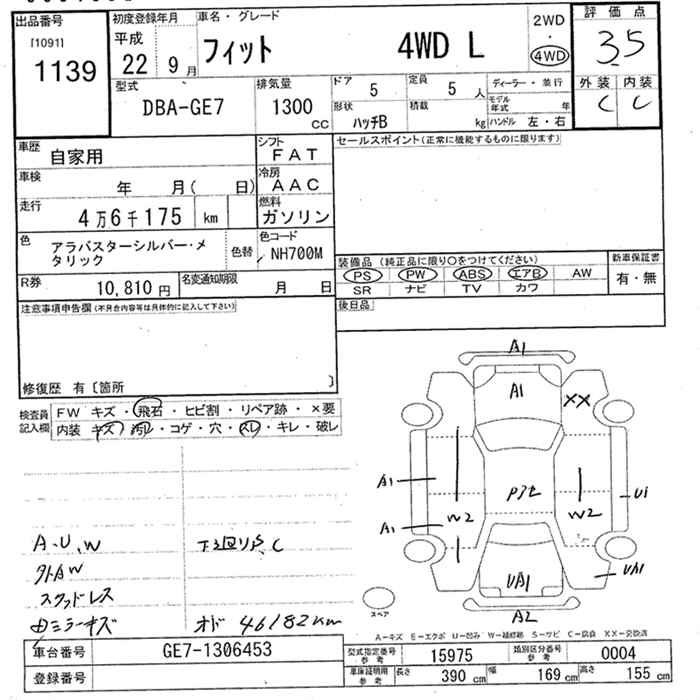 出品番号
[1091]
1139
初度登録年月
平成
22年 9月
車名・グレード
フィット 4WD L
2WD
・
4WD
評価点
3.5
外装 内装
C C
型式
DBA-GE7
排気量
1300
CC
ドア 5
定員 5 人
ディーラー・並行
形状 ハッチB
積載 kg
モデル年式 年
ハンドル 左・右
車歴 自家用
シフト FAT
車検 年 月( 日)
冷房 AAC
走行 4万6千175 km
燃料 ガソリン
色 アラバスターシルバー・メタリック
色替
色コード NH700M
R券 10,810円
名変通知期限 月 日
セールスポイント(正常に機能するものに限ります)
装備品(純正品に限り○をつけてください)
PS PW ABS エアB AW
SR ナビ TV カワ
新車保証書
有・無
後日品
注意事項申告欄(不具合内容等は具体的に記入して下さい)
修復歴 有〔箇所 〕
検査員記入欄
FW キズ・飛石・ヒビ割・リペア跡・×要
内装 キズ・汚レ・コゲ・穴・スレ・キレ・破レ
A・U、W
外AW
スタッドレス
ミラーキズ
下回りサビ、C
オド 46182km
A1
A1
XX
A1
U1
W2
W2
A1
UA1
UA1
A2
スペア
A-キズ E-エクボ U-凹み W-補修跡 S-サビ C-腐食 XX-交換済
車台番号 GE7-1306453
登録番号
型式指定番号 参考 15975
類別区分番号 参考 0004
車庫証明用 参考 長さ 390 cm 幅 169 cm 高さ 155 cm